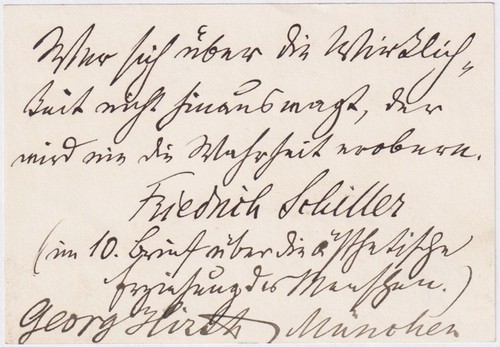 Wer sich über die Wirklich-
keit nicht hinauswagt, der
wird nie die Wahrheit erobern.
Friedrich Schiller
(im 10. Brief über die ästhetische
Erziehung des Menschen.)
Georg Hirth, München